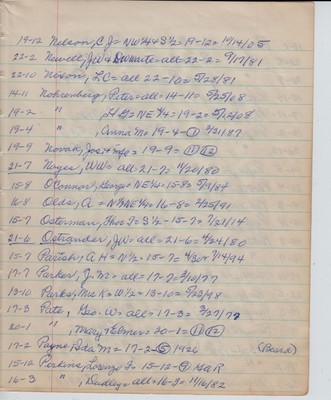 19-12 Nelson, C J = NW¼ & S½ = 19-12 = 10/14/05
22-2 Newell, JW & Dwaite = all 22-2 = 9/17/81
22-10 Nelson, LC = all 22-10 = 5/23/81
14-11 Nohrenberg, Peter = all = 14-11 = 5/25/08
19-2 " , H G = NE¼ = 19-2 =
19-4 " , Anna M = 19-4 - 11 2/21/87
19-9 Novak, Jos & = 19-9 = 11 12
21-7 Noyes, WW = all = 21-7 = 11/20/80
15-8 O'Connor, George = NE¼ = 15-8 = 5/19/84
16-8 Olds, A = N½ NE¼ = 16-8 = 2/25/91
15-7 Osterman, Thos F = S½ - 15-7 = 7/21/14
21-6 Ostrander, JW = all = 21-6 = 4/24/80
15-7 Parish, A H = N½ = 15-7 = 4/30 7/14/94
17-7 Parker, J. M = all = 17-7 = 3/10/77
13-10 Parks, Mc K = W½ = 13-10 = 5/23/98
17-3 Pate, Geo. W = all = 17-3 = 3/27/77
20-1 " , Mary & Elmer = 20-1 = 11 12
17-2 Payne, Ida M = 17-2 - 5 1926 (Beard)
15-12 Perkins, Lorenzo F = 15-12 - 9 G A R
16-3 " , Dudley = all = 16-3 = 11/16/82